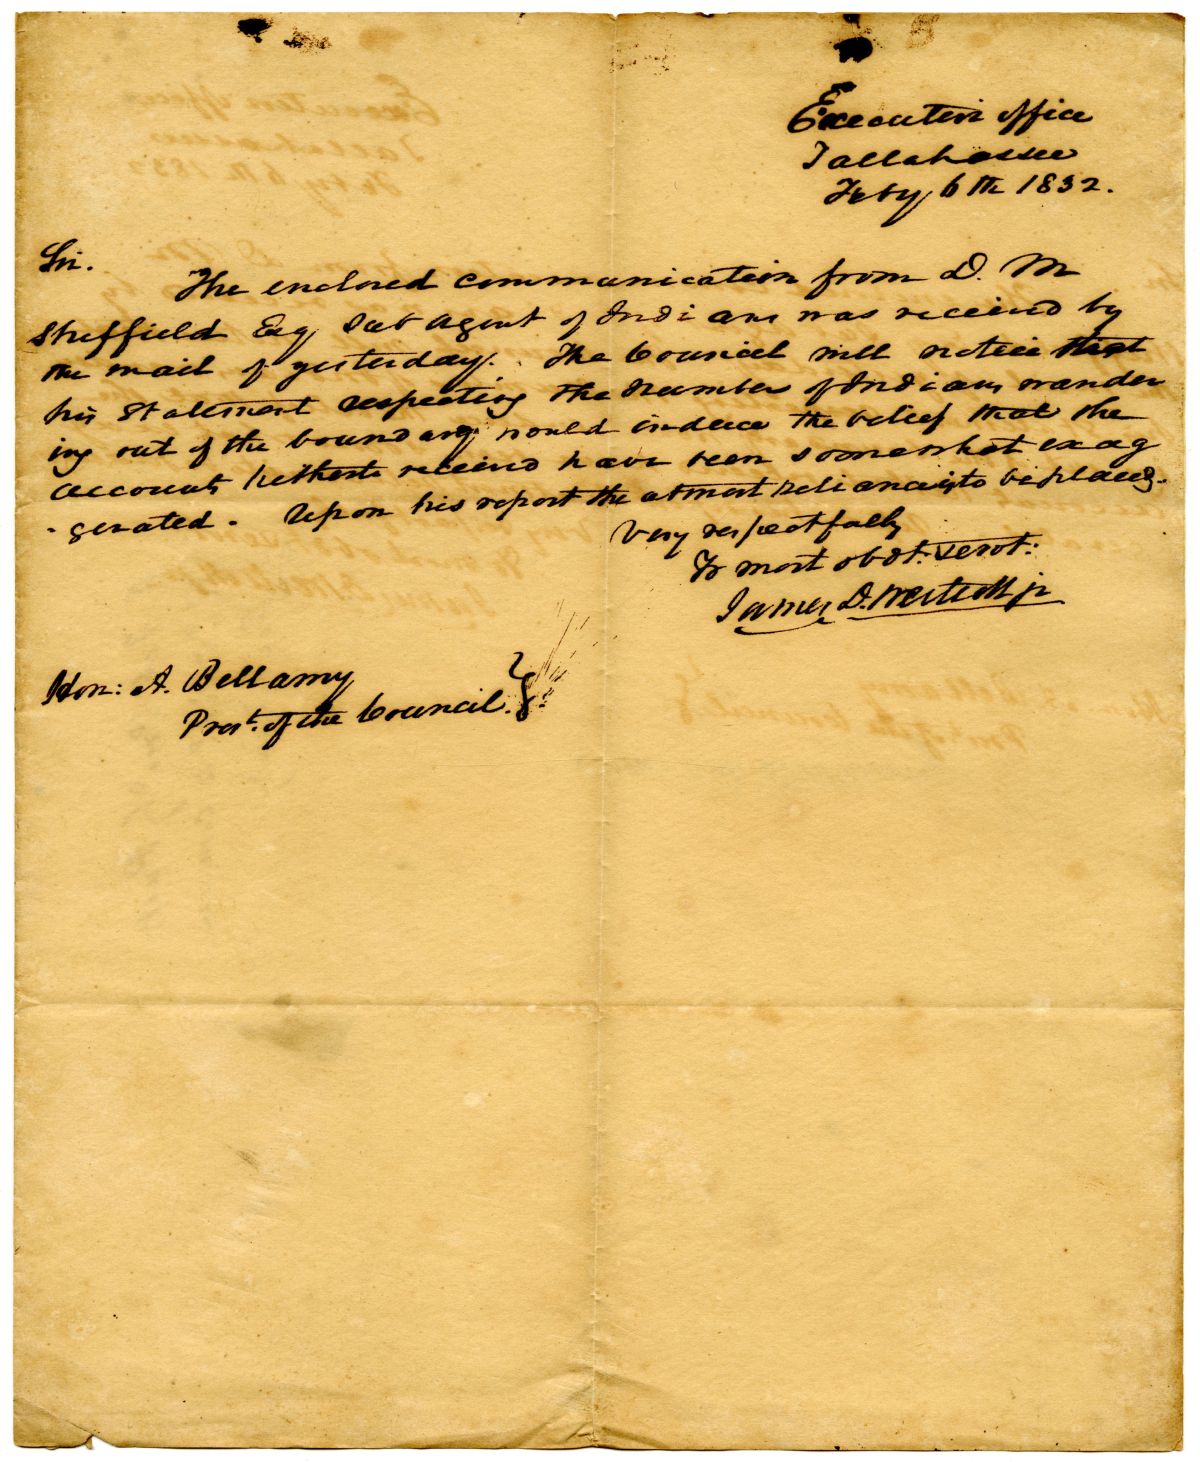 Executive office
Tallahassee
Feby 6th 1832.
Sir.
The enclosed communication from D. M
Sheffield Esq Sub Agent of Indians was received by
the mail of yesterday. The Council will notice that
his statement respecting the number of Indians wander
ing out of the boundary would induce the belief that the
accounts hitherto received have been somewhat exag
-gerated. Upon his report the utmost reliance is to be placed.
Very respectfully
Yr most obdt: servt:
James D. Westcott jr
Hon: A. Bellamy
Prest. of the Council.